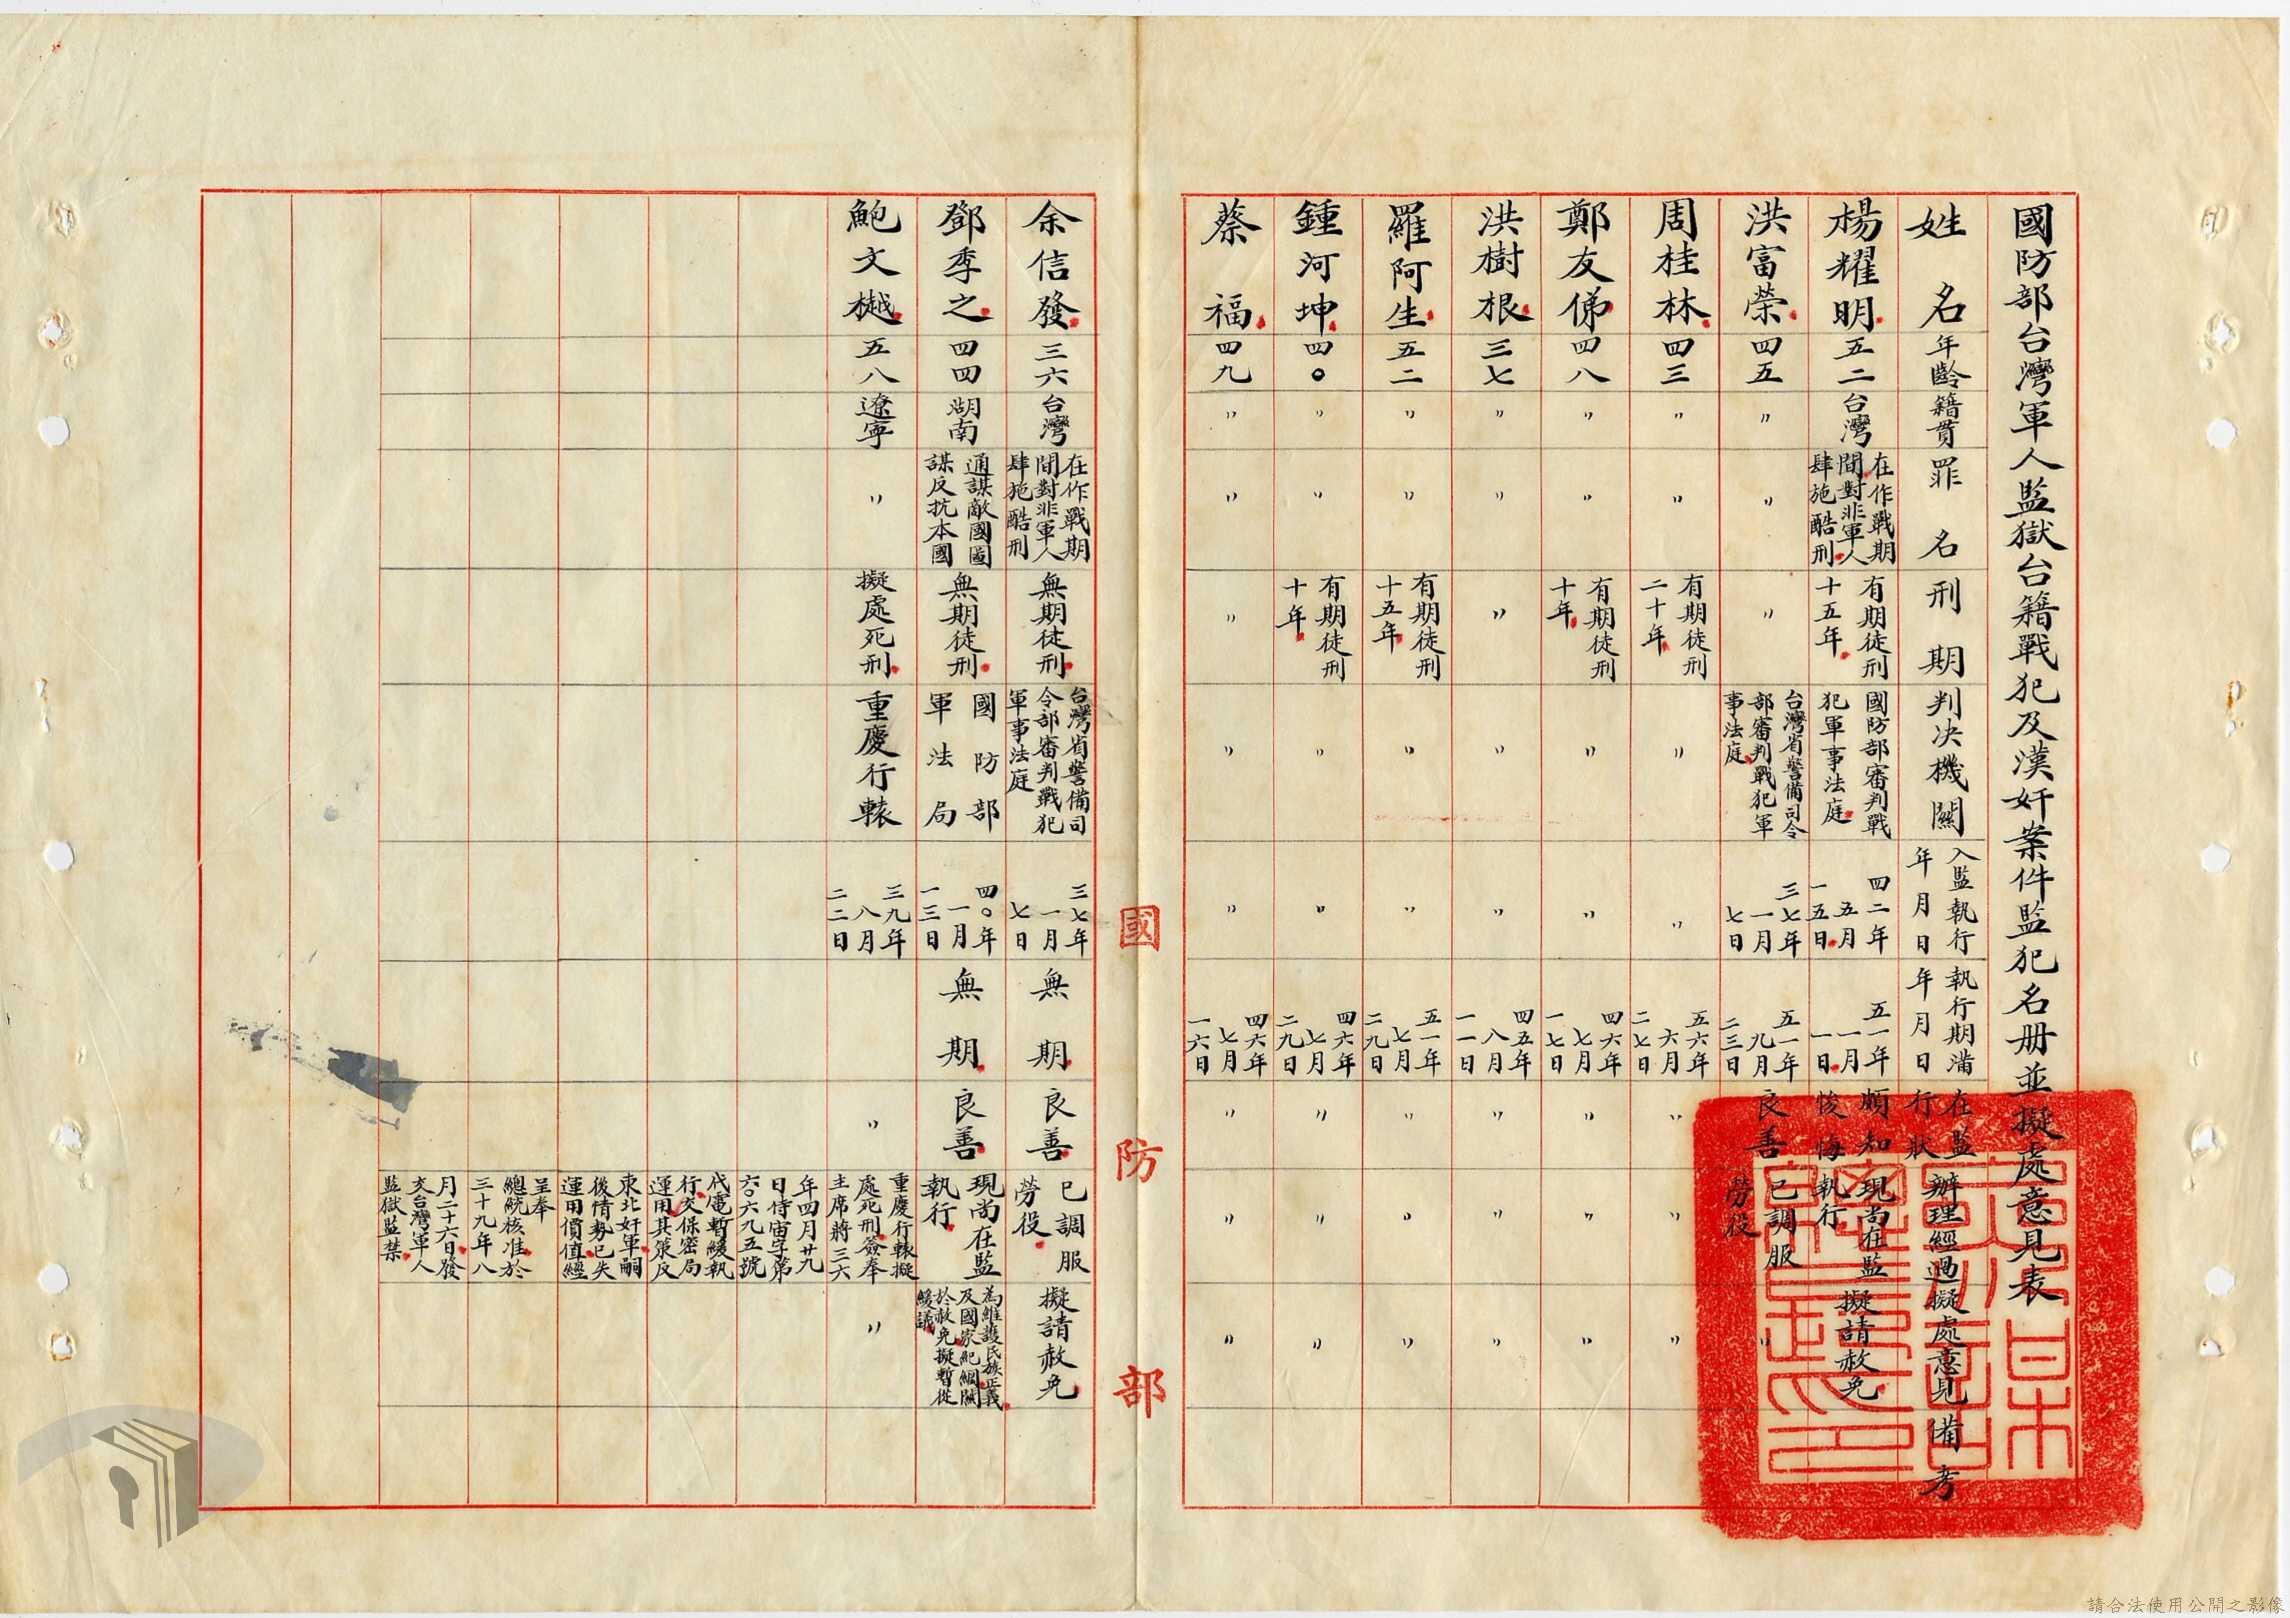 國防部台灣軍人監獄台籍戰犯及漢奸案件監犯名冊並擬處意見表
姓名 年齡 籍貫 罪名 刑期 判決機關 入監執行年月日 執行期滿年月日 在監行狀 辦理經過 擬處意見 備考
楊耀明 五二 台灣 在作戰期間對非軍人肆施酷刑 有期徒刑十五年 國防部審判戰犯軍事法庭 四二年五月一五日 五一年一月一日 頗知悛悔 現尚在監執行 擬請赦免
洪富榮 四五 〃 〃 〃 台灣省警備司令部審判戰犯軍事法庭 三七年一月七日 五一年九月二三日 良善 已調服勞役 〃
周桂林 四三 〃 〃 有期徒刑二十年 〃 〃 五六年六月二七日 〃 〃 〃
鄭友俤 四八 〃 〃 有期徒刑十年 〃 〃 四六年七月一七日 〃 〃 〃
洪樹根 三七 〃 〃 〃 〃 〃 四五年八月一一日 〃 〃 〃
羅阿生 五二 〃 〃 有期徒刑十五年 〃 〃 五一年七月二九日 〃 〃 〃
鍾河坤 四〇 〃 〃 有期徒刑十年 〃 〃 四六年七月二九日 〃 〃 〃
蔡福 四九 〃 〃 〃 〃 〃 四六年七月一六日 〃 〃 〃
國防部
余信發 三六 台灣 在作戰期間對非軍人肆施酷刑 無期徒刑 台灣省警備司令部審判戰犯軍事法庭 三七年一月七日 無期 良善 已調服勞役 擬請赦免
鄧季之 四四 湖南 通謀敵國圖謀反抗本國 無期徒刑 國防部軍法局 四〇年一月一三日 無期 良善 現尚在監執行 為維護民族正義及國家紀綱關於赦免擬暫從緩議
鮑文樾 五八 遼寧 〃 擬處死刑 重慶行轅 三九年八月二二日 〃 重慶行轅擬處死刑簽奉主席蔣三六年四月廿九日侍宙字第六〇六九五號代電暫緩執行交保密局運用其策反東北奸軍嗣後情勢已失運用價值經呈奉總統核准於三十九年八月二十六日發交台灣軍人監獄監禁 〃
請合法使用公開之影像